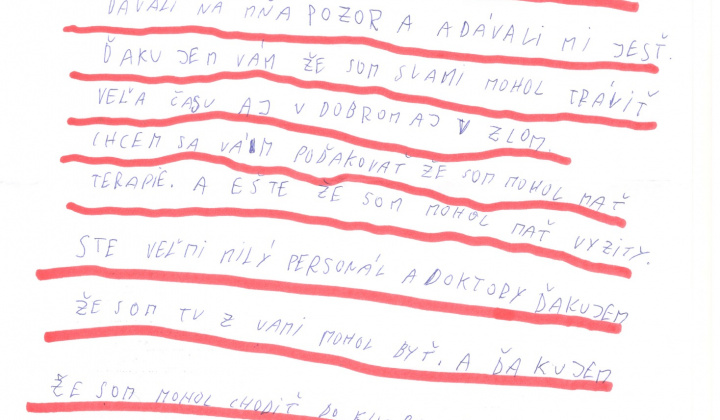 DÁVALI NA MŇA POZOR A ADÁVALI MI JESŤ.
ĎAKUJEM VÁM ŽE SOM SVAMI MOHOL TRÁVIŤ
VEĽA ČASU AJ V DOBROM AJ V ZLOM.
CHCEM SA VÁM POĎAKOVAŤ ŽE SOM MOHOL MAŤ
TERAPIE. A EŠTE ŽE SOM MOHOL MAŤ VYZITY.
STE VEĽMI MILÝ PERSONÁL A DOKTORY ĎAKUJEM
ŽE SOM TU Z VAMI MOHOL BYŤ. A ĎAKUJEM
ŽE SOM MOHOL CHODIŤ DO